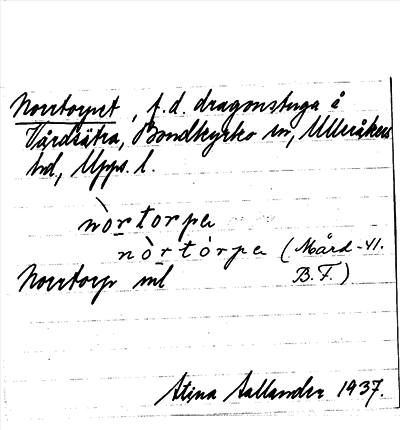 Norrtorpet, f.d. dragonstuga å
Vårdsätra, Bondkyrko sn, Ulleråkers
hd, Upps. l.
nòrtorpa
nòrtòrpa (Mård -41.
Norrtorp ml B.F.)
Stina Sallander 1937.